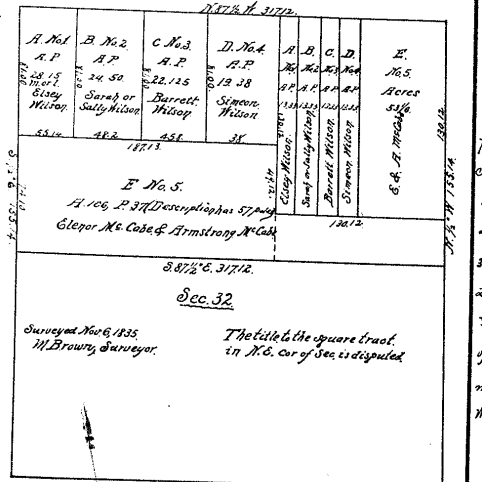 N. 87½ W. 317.12.
A. No.1
A. P
28.15
m.or l.
Elsey
Wilson.
55.14
B. No.2
A.P
24.50.
Sarah or
Sally Wilson
48.2
C No.3
A.P.
22.125
Barrett
Wilson
45.8
D. No.4
A.P.
19.38
Simeon.
Wilson.
38
A B. C. D.
No.1 No.2 No.3 No.4
A.P. A.P. A.P. A.P.
Elsey Wilson.
Sarah or Sally Wilson
Barrett Wilson.
Simeon Wilson.
E.
No.5
Acres
53⅙
E. & A. McCabe
130.12
187.13
E No. 5.
A. 106, P. 37 (Description has 57 poles)
Elenor Mc. Cabe & Armstrong McCabe
130.12
N. ½° W 155.14.
S. 87½° E. 317.12.
Sec. 32
Surveyed Nov. 6, 1835.
M. Brown, Surveyor.
The title to the square tract
in N.E. cor of Sec. is disputed